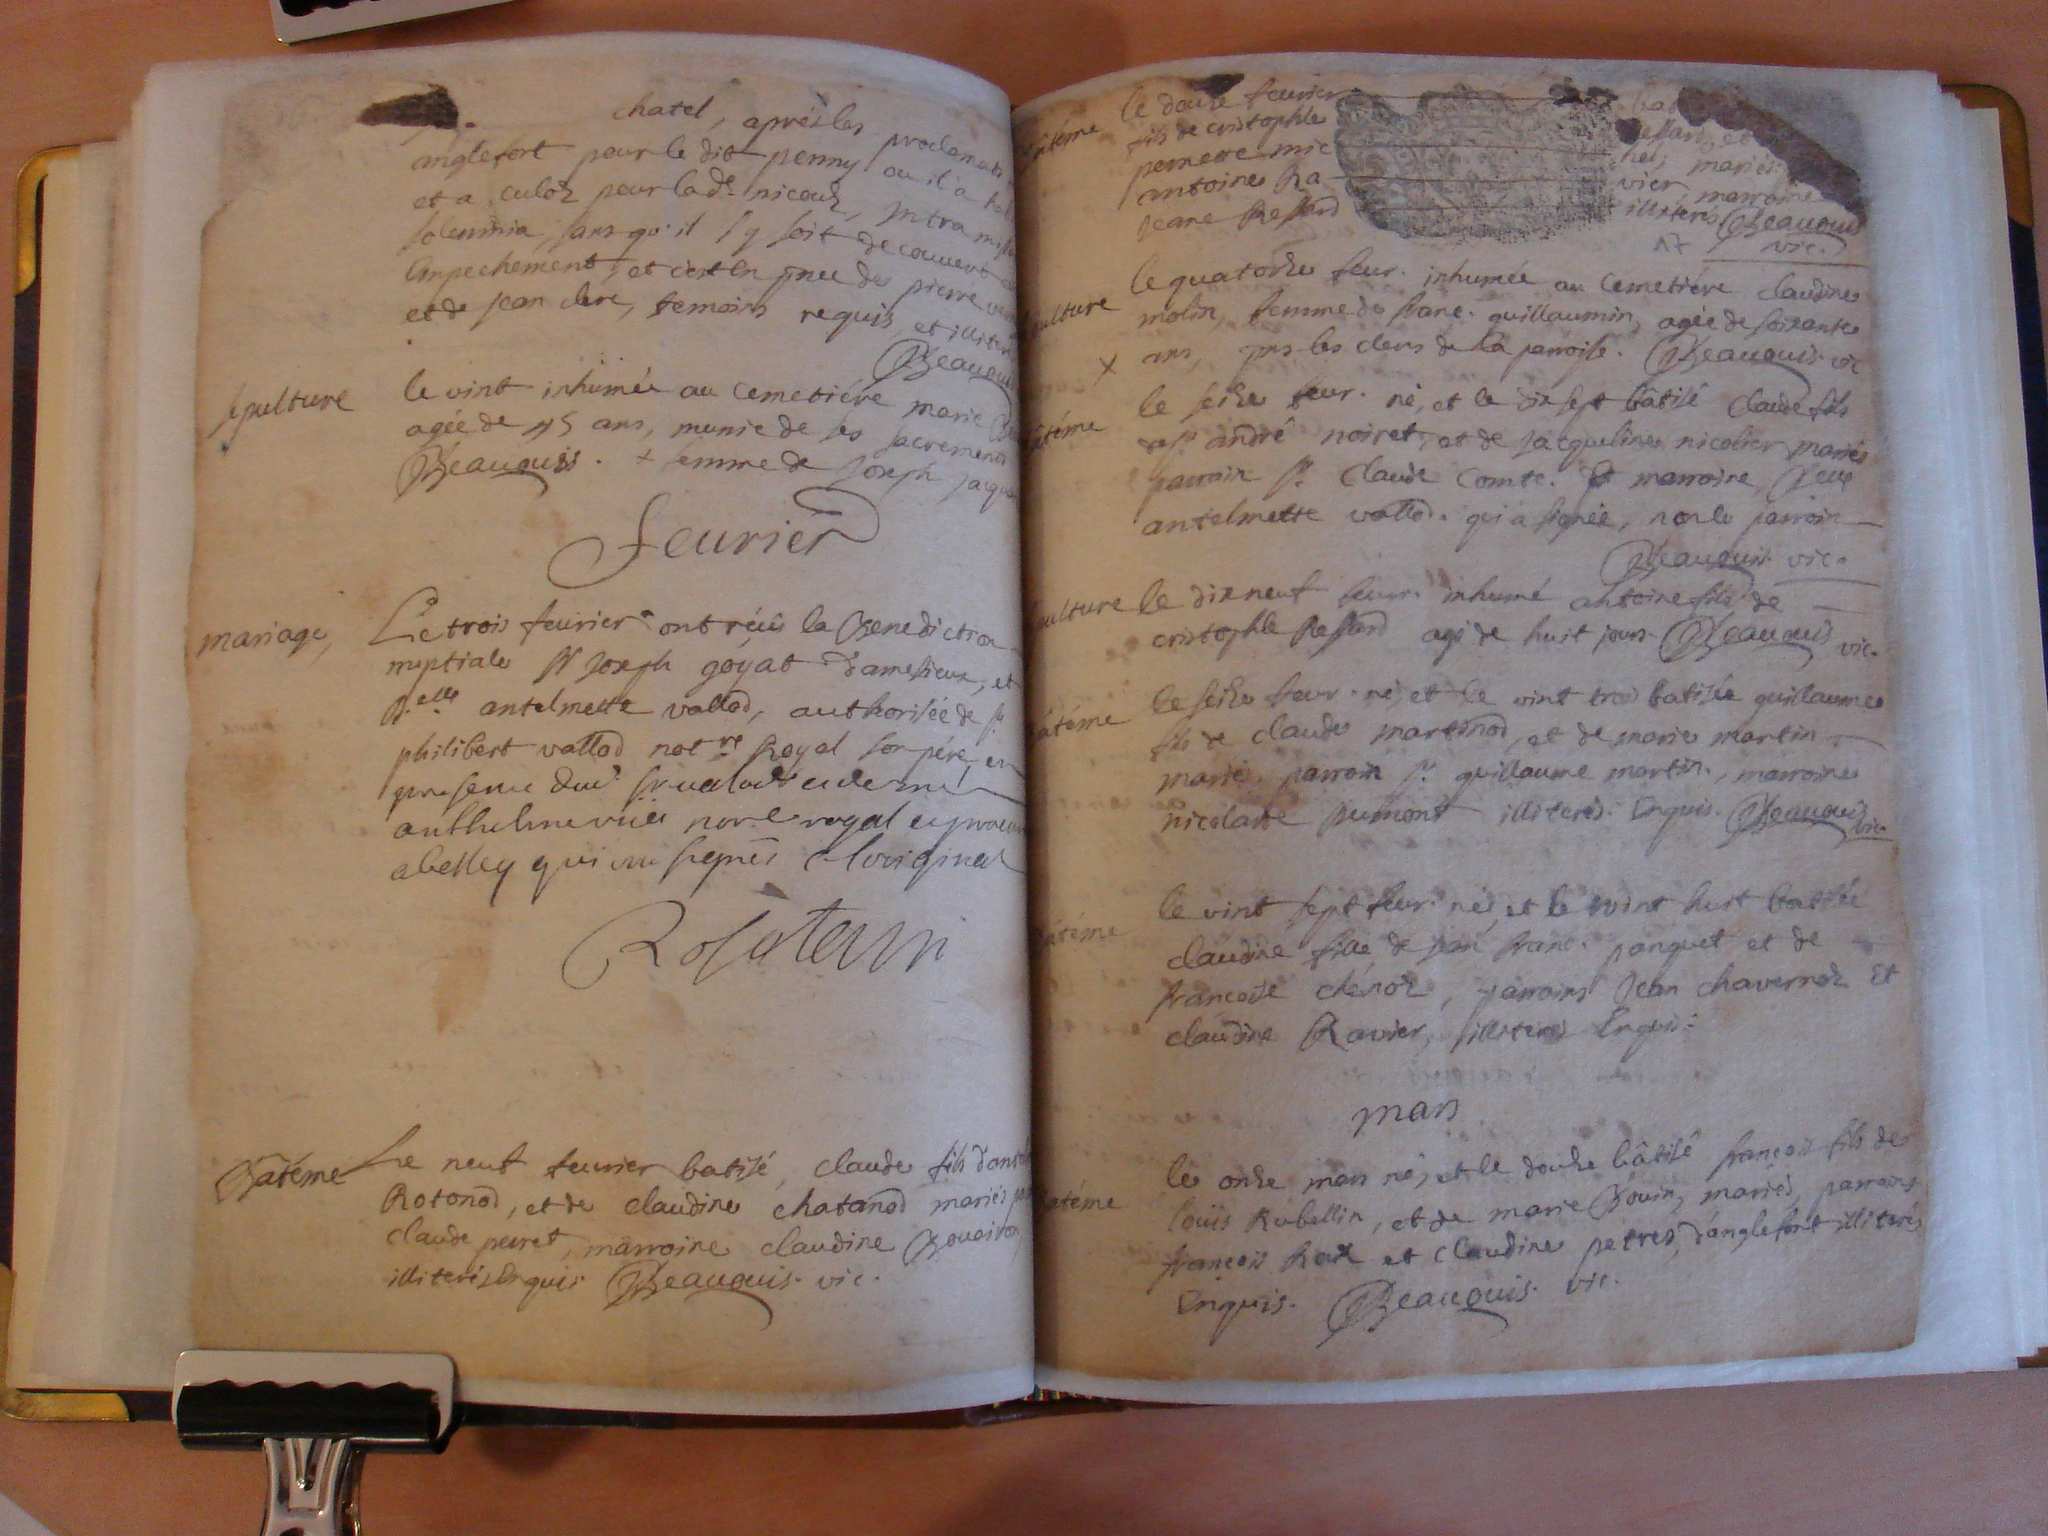 chatel, apres les proclamati
anglefort pour le dit penny ou il a
et a culoz pour la de. nicoud, intra missa
solemnia, sans qu'il sy soit decouvert
Empechement, et c'est En pnce de pierre
et de jean clerc, temoins requis, et illiter
Beauquis
sepulture
le vint inhumée au cemetiére marie
agée de 45 ans, munie de ses sacremens
Beauquis. + femme de Joseph jacqu
fevrier
mariage,
Le trois feurier ont réçûs la Benediction
nuptiale sr Joseph goyat d'amesieux, et
D.elle antelmette vallod, authorisée de sr.
philibert vallod not.re Royal son pére, en
presence dud. sr
anthelme royal
abelley qui ont signés a l'original
Batéme
Le neuf feurier batisé, claude fils d'ant
Rotonod, et de claudine chatanod mariés par
claude perret, marroine claudine
illiterés Enquis. Beauquis. vic.
atéme
le douze feurier
fils de cristophle
pernette mic
antoine Ra
Jeane Reffard
bat
effard, et
hel, mariés
vier, marroine
illiterés Beauquis
17
vic.
pulture
le quatorze feur. inhumée au Cemetiére claudine
molin, femme de franc. guillaumin, agée de soixante
x ans, pns les clercs de la parroise. Beauquis. vic
atéme
le seize feur. né, et le dix sept bâtisé Claude fils
de sr. andré noiret, et de jacqueline nicolier mariés
parrain sr. Claude Comte. Et marroine, Delle
antelmette vallod. qui a signée, non le parroin
Beauquis. vic.
pulture
le dixneuf feur. inhumé antoine fils de
cristophle Reffard agé de huit jours. Beauquis vic.
atéme
le seize feur. né, et le vint trois batisée guillaume
fils de claude martinod, et de marie martin
mariés, parroin sr. guillaume martin, marroine
nicolarde Dumont illiterés. Enquis. Beauquis vic.
atéme
le vint sept feur. née, et le vint huit batisée
claudine fille de jean franc. panquet et de
francoise chénoz, parroins Jean chavernoz Et
claudine Ravier, illiterés Enquis.
mars
atéme
le onze mars né, et le douze bâtisé françois fils de
loüis Rubellin, et de marie Bouin, mariés, parroins
françois Rax et claudine petres, d'anglefort illiterés
Enquis. Beauquis. vic.